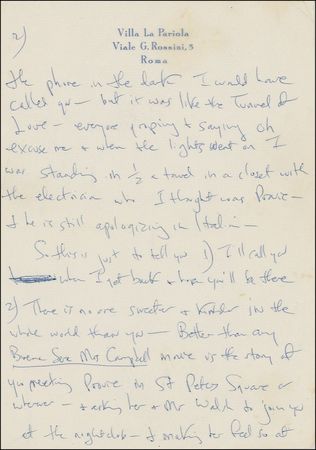 2)
Villa La Pariola
Viale G. Rossini, 5
Roma
the phone in the dark I would have
called you — but it was like the Tunnel of
Love — everyone groping & saying oh
excuse me & when the lights went on I
was standing in ½ a towel in a closet with
the electrician who I thought was Provie —
& he is still apologizing in Italian —
So this is just to tell you 1) I'll call you
when I get back & hope you'll be there
2) There is no one sweeter & kinder in the
whole world than you — Better than any
Buona Sera Mrs Campbell movie is the story of
you meeting Provie in St Peters Square or
wherever — & asking her & Mr Walsh to join you
at the nightclub — & making her feel so at